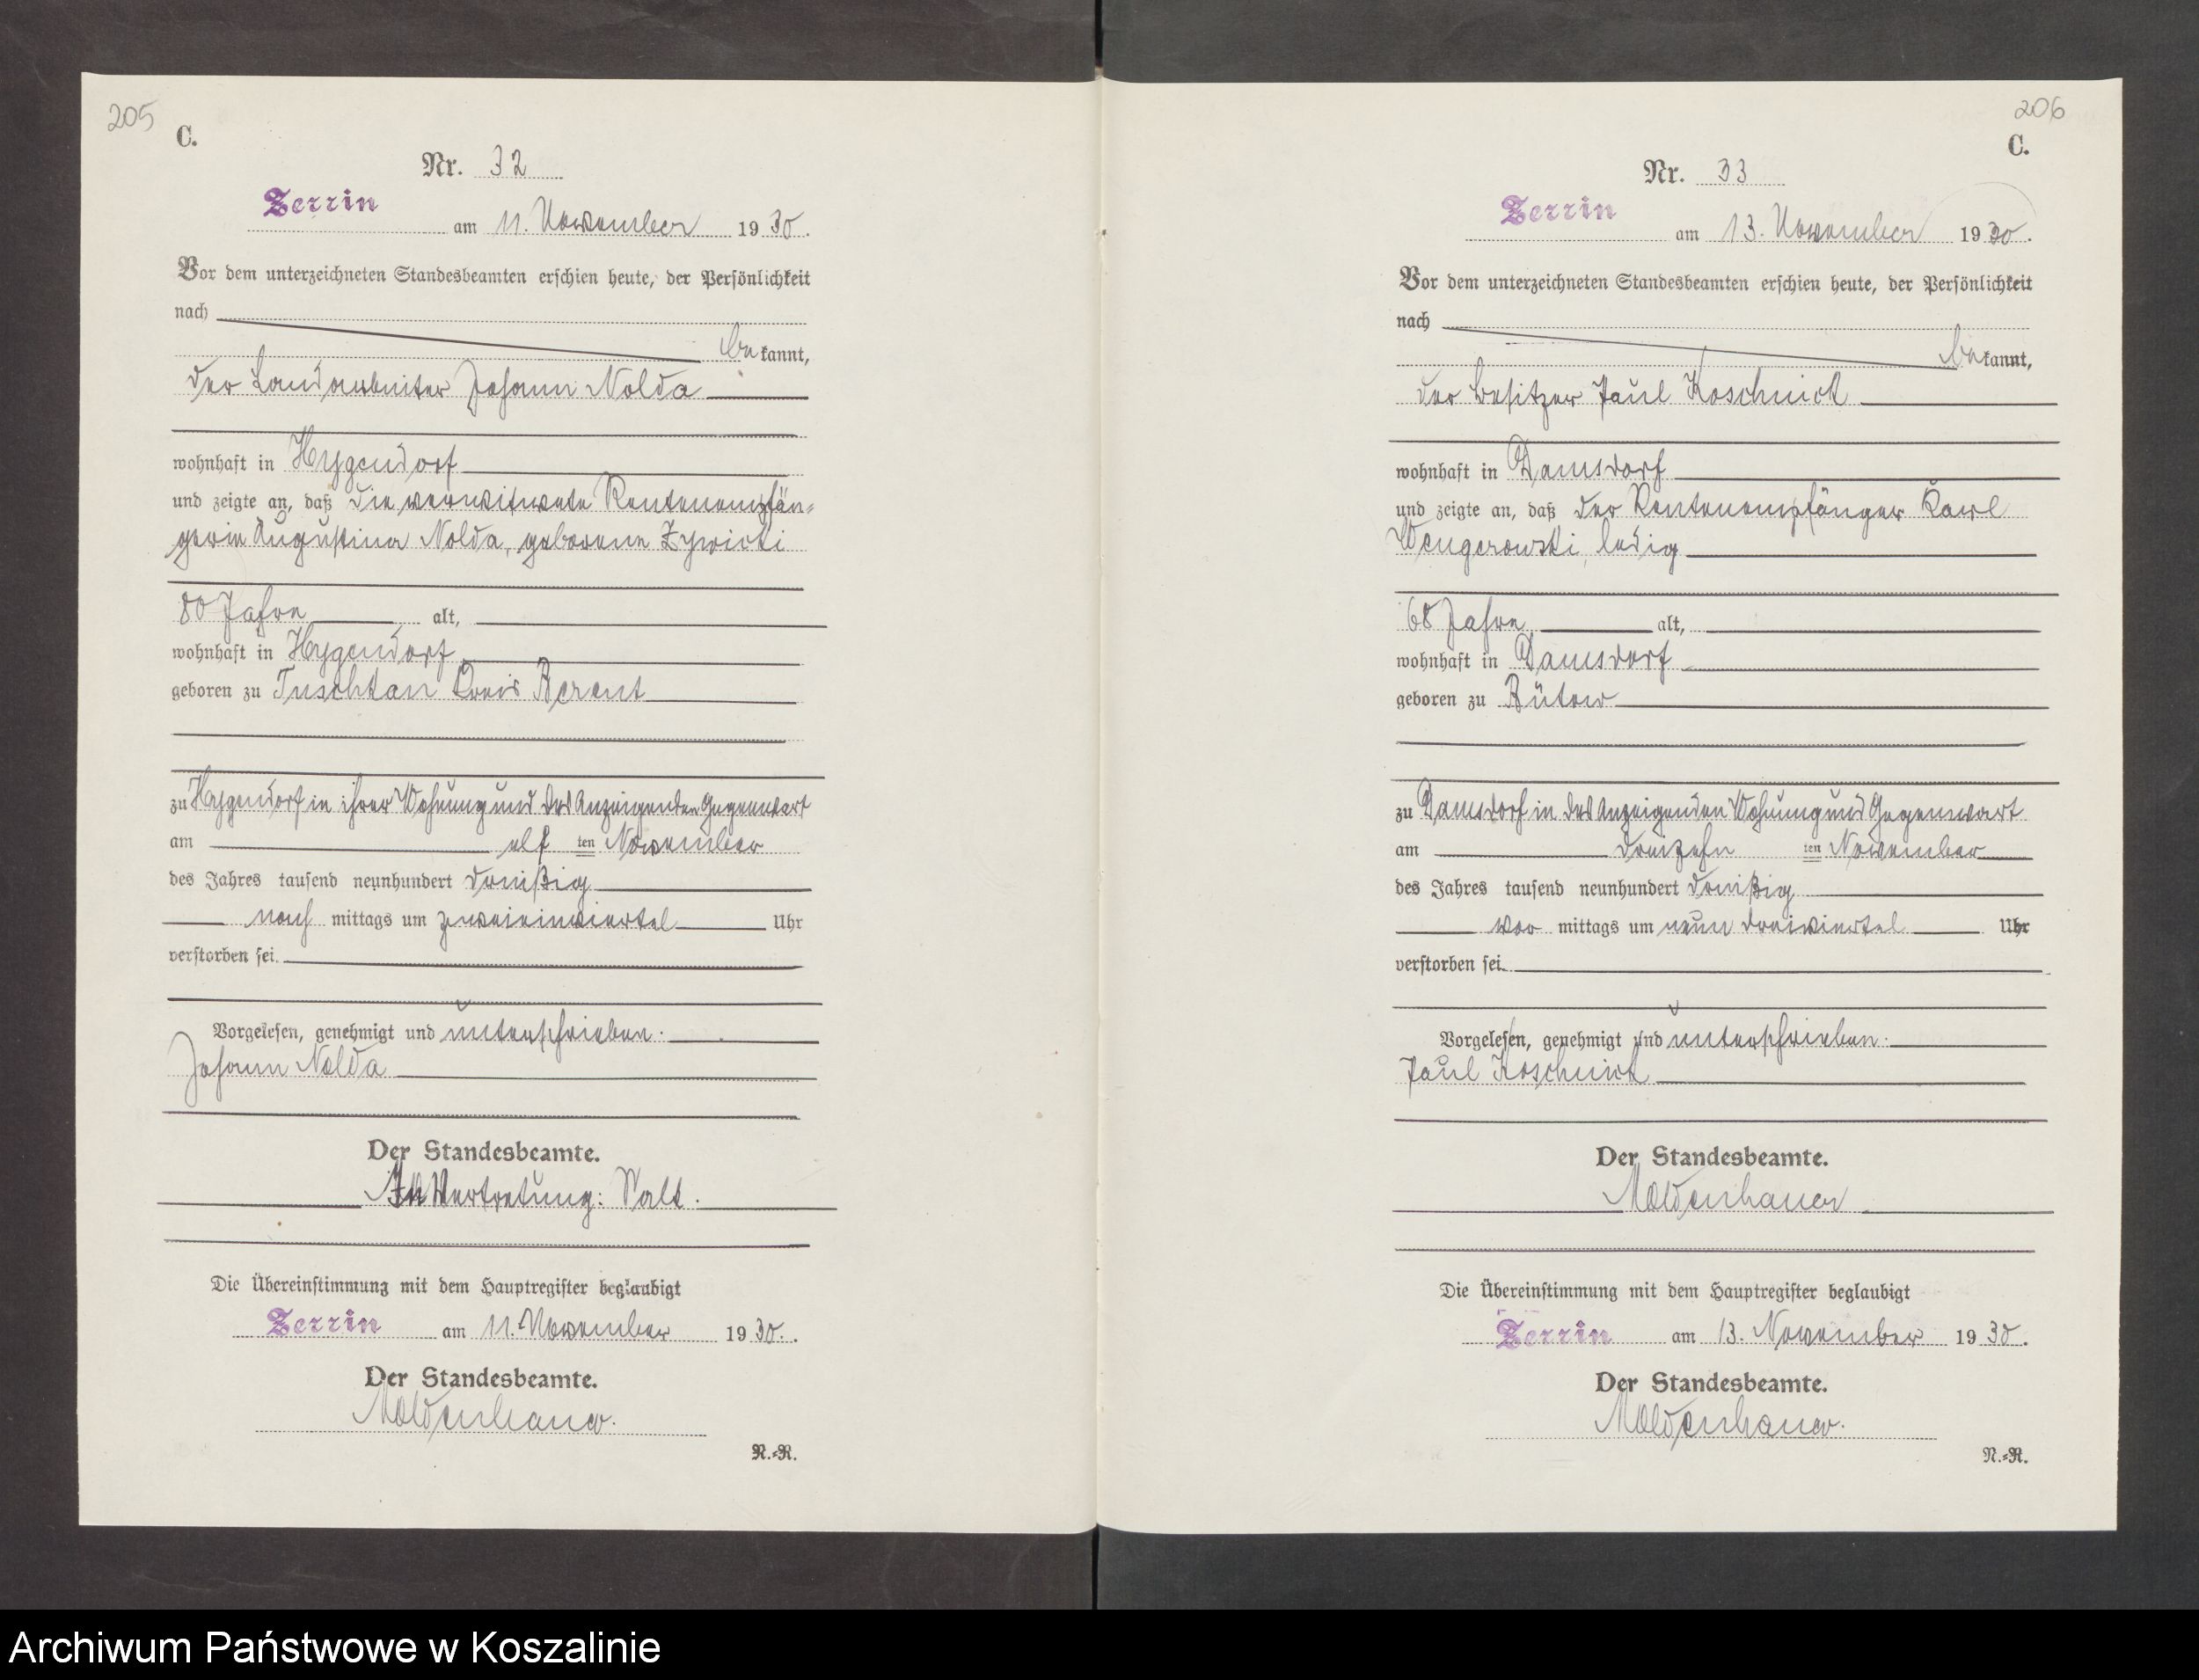 205
C.
Nr. 32
Zerrin am 11. November 1930.
Vor dem unterzeichneten Standesbeamten erschien heute, der Persönlichkeit
nach
be kannt,
der Landarbeiter Johann Nolda
wohnhaft in Hygendorf
und zeigte an, daß die verwitwete Rentenempfän-
gerin Augustina Nolda, geborene Zywicki
80 Jahre alt,
wohnhaft in Hygendorf
geboren zu Tuschkau Kreis Berent
zu Hygendorf in ihrer Wohnung und des Anzeigenden Gegenwart
am elf ten November
des Jahres tausend neunhundert dreißig
nach mittags um zweieinviertel Uhr
verstorben sei.
Vorgelesen, genehmigt und unterschrieben.
Johann Nolda
Der Standesbeamte.
In Vertretung:
Die Übereinstimmung mit dem Hauptregister beglaubigt
Zerrin am 11. November 1930.
Der Standesbeamte.
Moldenhauer.
N.-R.
206
C.
Nr. 33
Zerrin am 13. November 1930.
Vor dem unterzeichneten Standesbeamten erschien heute, der Persönlichkeit
nach
be kannt,
der Besitzer Paul Koschnick
wohnhaft in Damsdorf
und zeigte an, daß der Rentenempfänger Karl
Wengerowski, ledig
68 Jahre alt,
wohnhaft in Damsdorf
geboren zu Bütow
zu Damsdorf in des Anzeigenden Wohnung und Gegenwart
am dreizehn ten November
des Jahres tausend neunhundert dreißig
vor mittags um neun dreiviertel Uhr
verstorben sei.
Vorgelesen, genehmigt und unterschrieben.
Paul Koschnick
Der Standesbeamte.
Moldenhauer
Die Übereinstimmung mit dem Hauptregister beglaubigt
Zerrin am 13. November 1930.
Der Standesbeamte.
Moldenhauer.
N.-R.
Archiwum Państwowe w Koszalinie